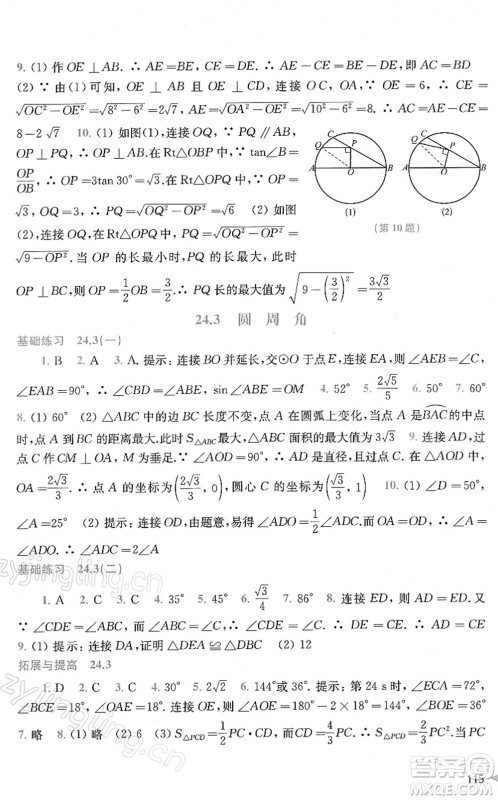 9. (1) 作 OE ⊥ AB. ∴ AE=BE, CE=DE. ∴ AE-CE=BE-DE, 即 AC=BD
(2) ∵ 由(1)可知, OE ⊥ AB 且 OE ⊥ CD, 连接 OC, OA. ∵ OE=6, ∴ CE=
√(OC²-OE²)=√(8²-6²)=2√7, AE=√(OA²-OE²)=√(10²-6²)=8. ∴ AC=AE-CE=
8-2√7 10. (1) 如图(1), 连接 OQ, ∵ PQ // AB,
OP ⊥ PQ, ∴ OP ⊥ AB. 在 Rt△OBP 中, ∵ tan∠B=
OP/OB, ∴ OP=3tan 30°=√3. 在 Rt△OPQ 中, ∵ OP=
√3, OQ=3, ∴ PQ=√(OQ²-OP²)=√6 (2) 如图
(2), 连接 OQ, 在 Rt△OPQ 中, PQ=√(OQ²-OP²)=
√(9-OP²). 当 OP 的长最小时, PQ 的长最大, 此时
OP ⊥ BC, 则 OP=1/2 OB=3/2. ∴ PQ 长的最大值为 √(9-(3/2)²)=3√3/2
C
Q
P
A
O
B
(1)
C
Q
P
A
O
B
(2)
(第 10 题)
24.3 圆 周 角
基础练习 24.3(一)
1. B 2. A 3. A. 提示: 连接 BO 并延长, 交⊙O 于点 E, 连接 AE, 则∠AEB=∠C,
∠EAB=90°, ∴ ∠CBD=∠ABE, sin∠ABE=OM 4. 52° 5. 2√5/5 6. 32° 7. 90°
8. (1) 60° (2) △ABC 中, BC 的长度不变, 点 A 在圆弧上变化, 当点 A 是BAC的中点时,
点 A 到 BC 的距离最大. 此时 S△ABC=3√3/4, △ABC 面积的最大值是3√3/4 9. 连接 AB, 过
点 C 作 CM ⊥ OA, 垂足为 M. ∵ ∠COA=90°, ∴ AD 是直径, 且过点 C. 在 △AOD 中,
OA=2√3/3. ∴ 点 A 的坐标为 (2√3/3, 0), 圆心 C 的坐标为 (√3/3, 1) 10. (1) ∠D=50°,
∠A=25° (2) 提示: 连接 OD, 由题意, 易得 ∠ADO=1/2∠AOD. 而 OA=OD, ∴ ∠A=
∠ADO. ∴ ∠AOD=2∠A
基础练习 24.3(二)
1. A 2. C 3. C 4. 35° 5. 35° 6. √3/4 7. 86° 8. 连接 BD, ∵ OB=OD,
∴ ∠CDE=∠ABC. ∵ ∠ABC=∠ACB, ∴ ∠CDE=∠DCE. ∴ DE=CE. ∴ AE=CE
9. (1) 提示: 连接 DA, 证明 △DEA ≌ △DBC (2) 12
拓展与提高 24.3
1. D 2. C 3. B 4. 35° 5. 2√2 6. 144°或 36°. 提示: 第 24 s 时, ∠ECA=72°,
∠BCE=18°, ∠OAE=18°. ∴ ∠BOE=180°-18°×2=144° 或∠BOE=18°×2=36°
7. 略 8. (1) 略 (2) 6 (3) S△PCD=1/2PC·CD, ∴ S△PCD=1/2PC². ∴ 当 PC
115